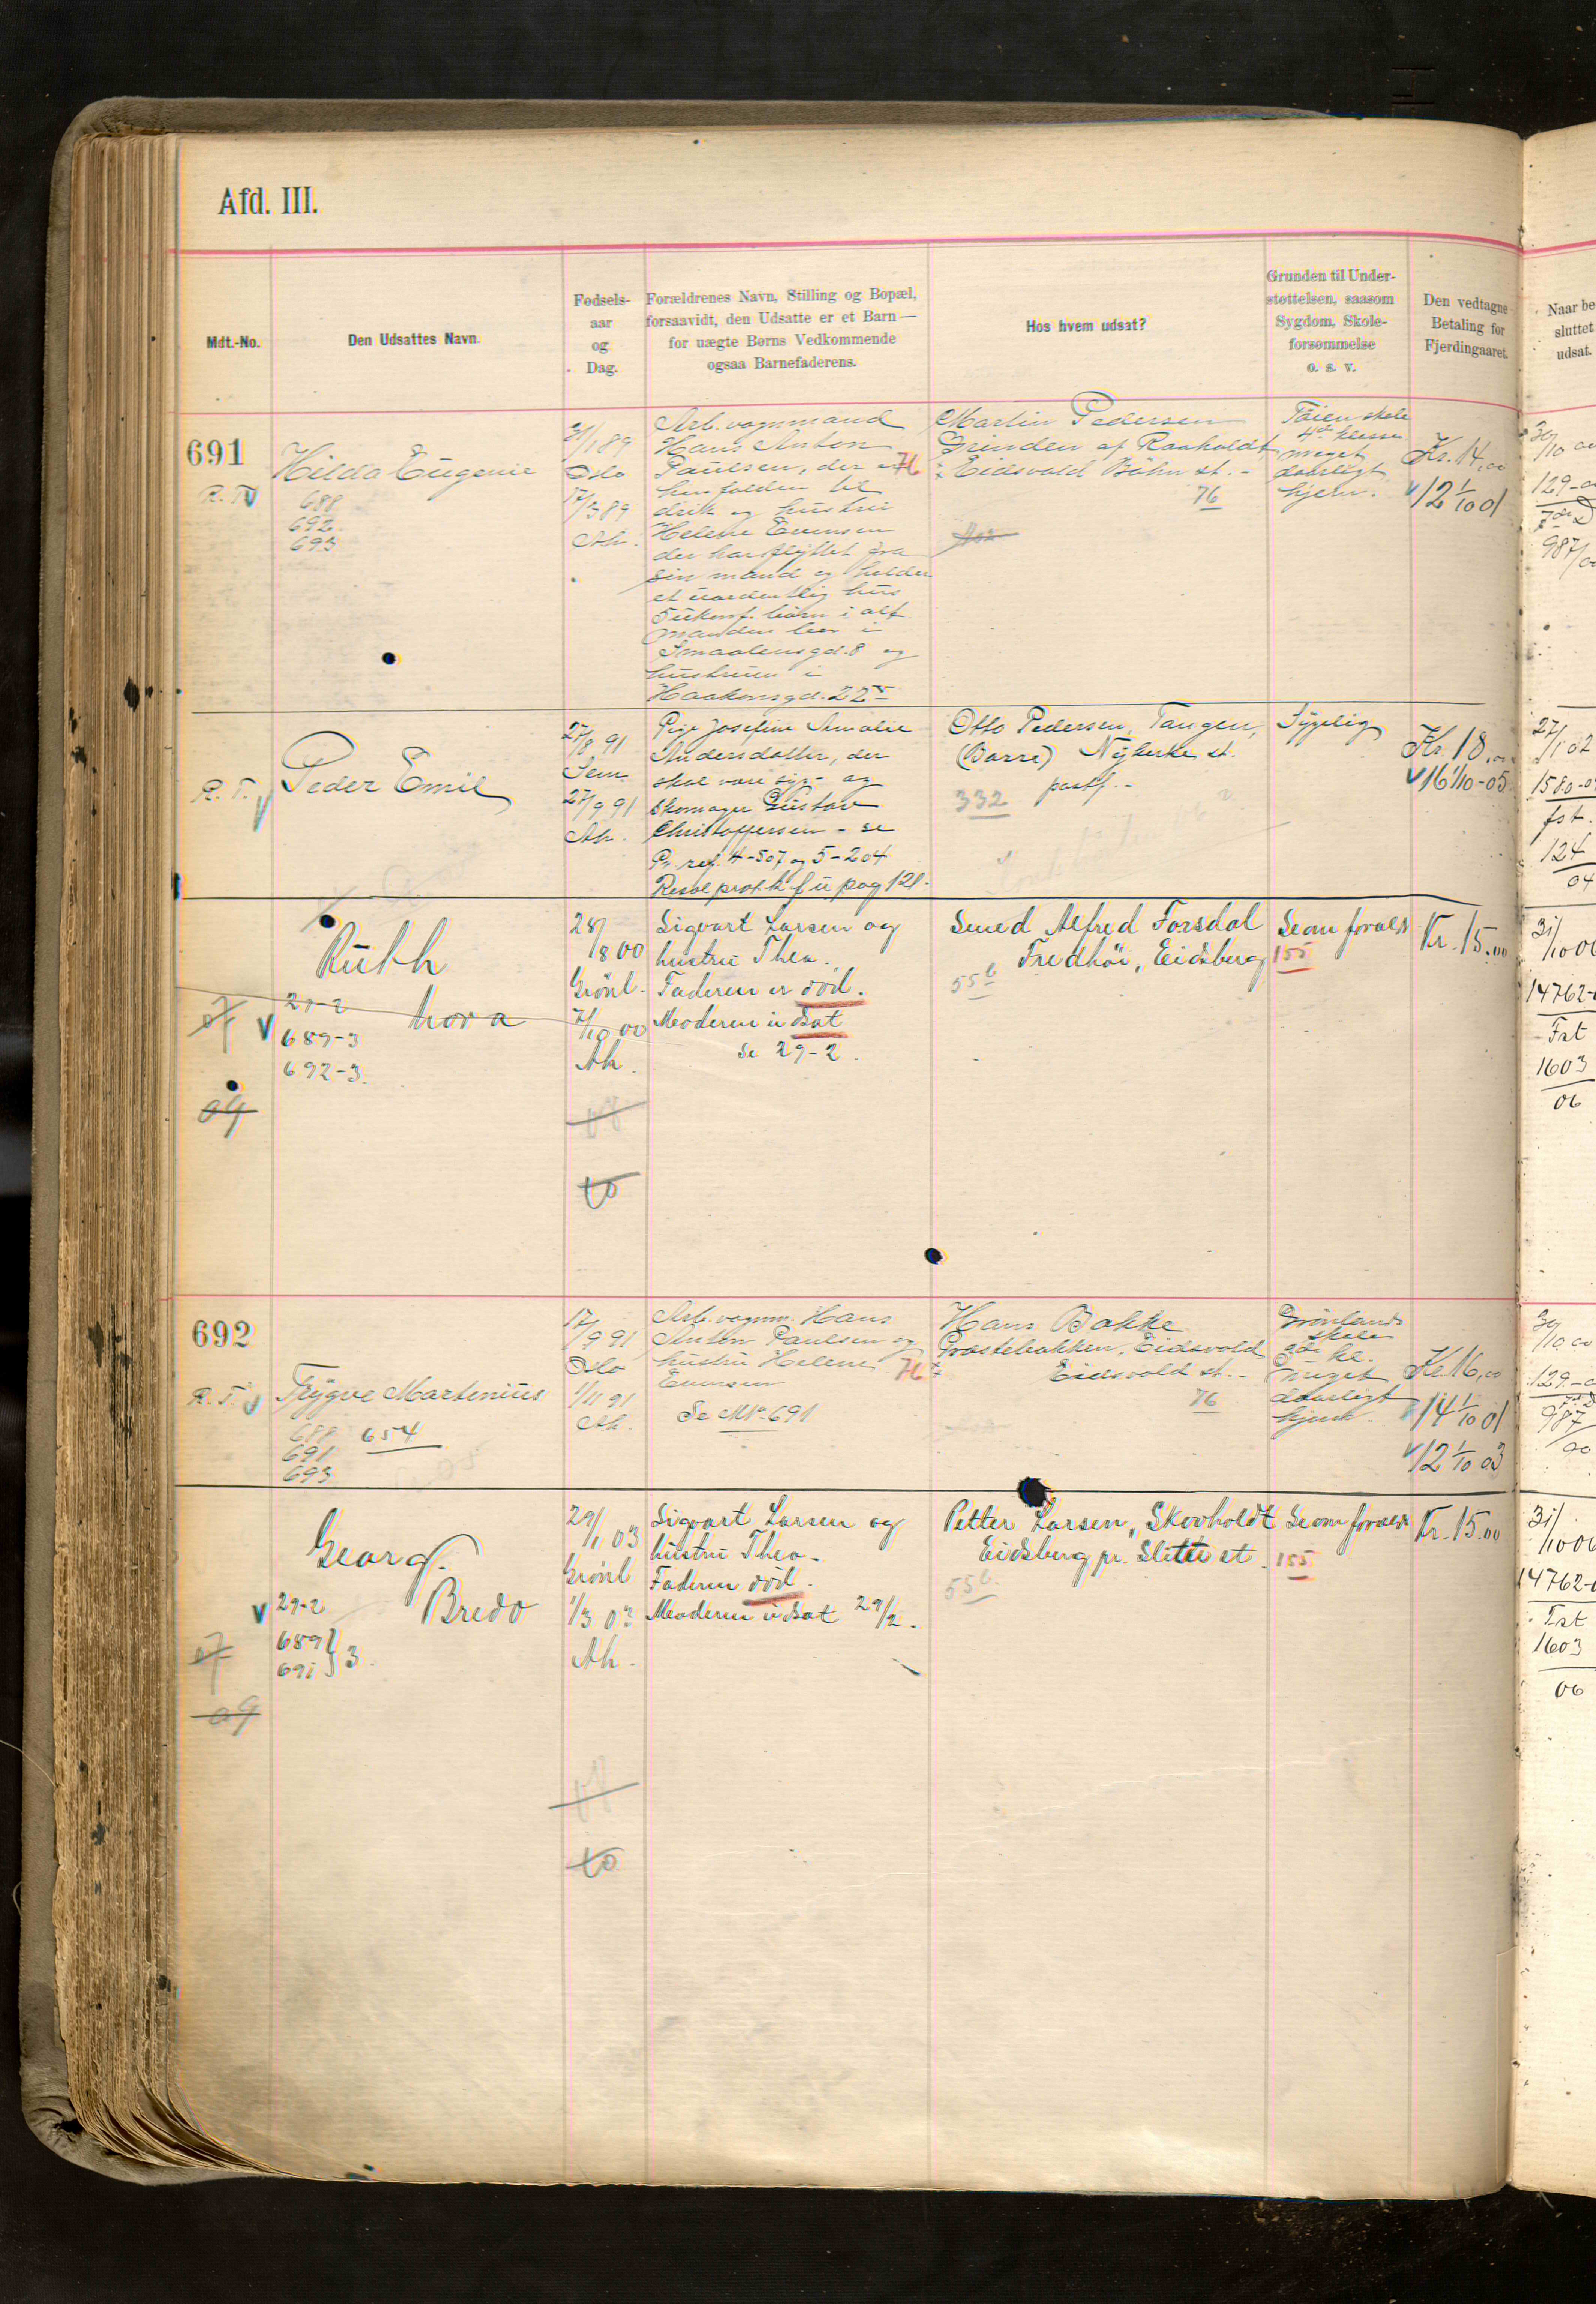 Afd. III.
Mdt.-No.
Den Udsattes Navn.
Fødsels-
aar
og
Dag.
Forældrenes Navn, Stilling og Bopæl,
forsaavidt, den Udsatte er et Barn —
for uægte Børns Vedkommende
ogsaa Barnefaderens.
Hos hvem udsat?
Grunden til Under-
støttelsen, saasom
Sygdom, Skole-
forsømmelse
o. s. v.
Den vedtagne
Betaling for
Fjerdingaaret.
Naar be
sluttet
udsat.
691
R. T.
Hilda Eugenie
688
692
693
31/1 89
Oslo
17/3 89
Ak.
Arb. vognmand
Hans Anton
Paulsen, der er
henfalden til
drik og hustru
Helene Evensen
der har flyttet fra
sin mand og holder
et uordentlig hus
5 ukonf. børn i alt
manden bor i
Smaalensgd. 8 og
hustruen i
Haakonsgd. 22
76
Martin Pedersen
Grinden af Raaholdt
Eidsvold Bøhn st. -
76
Tøien skole
4de klasse
meget
daarligt
hjem.
Kr. 14,00
12 1/10 01
30/10 00
129-0
987/0
R. T.
Peder Emil
27/8 91
Sem
27/9 91
Ak.
Pige Josefine Amalie
Andersdatter, der
skal være syg - og
Skomager Gustav
Christoffersen - se
Pr. ref. 4-507 og 5-204
Resol prot. k f u pag 121.
Otto Pedersen, Tangen,
(Borre) Nykirke st.
postf. -
332
Sygelig
Kr. 18,00
16 1/10-05
27/1 02
1580-0
fst.
124
04
Ruth
Nora
29-2
689-3
692-3.
07
09
28/8 00
Grønl.
7/10 00
Ak.
08
10
Sigvart Larsen og
hustru Thea.
Faderen er død.
Moderen udsat
Se 29-2.
Smed Alfred Forsdal
Fredhøi, Eidsberg
55b
Se om foræld
155
Kr. 15.00
31/10 06
14762-0
Fst
1603
06
692
R. T.
Trygve Martenius
688 654
691
693
17/9 91
Oslo
1/11 91
Ak.
Arb. vognm. Hans
Anton Paulsen og
hustru Helene
Evensen
Se M№ 691
76
Hans Bakke
Præstebakken, Eidsvold
Eidsvold st. -
76
Grønlands
skole
2de kl.
meget
daarligt
hjem.
Kr. 16,00
14 1/10 01
12 1/10 03
30/10 00
129-0
987
00
Georg
Bredo
29-2
689 } 3.
691
07
09
29/1 03
Grønl
1/3 03
Ak.
10
Sigvart Larsen og
hustru Thea.
Faderen død.
Moderen udsat 29/2.
Petter Larsen, Skovholdt
Eidsberg pr. Slitu st.
55b.
Se om foræld
155
Kr. 15.00
31/10 06
14762-0
Fst
1603
06